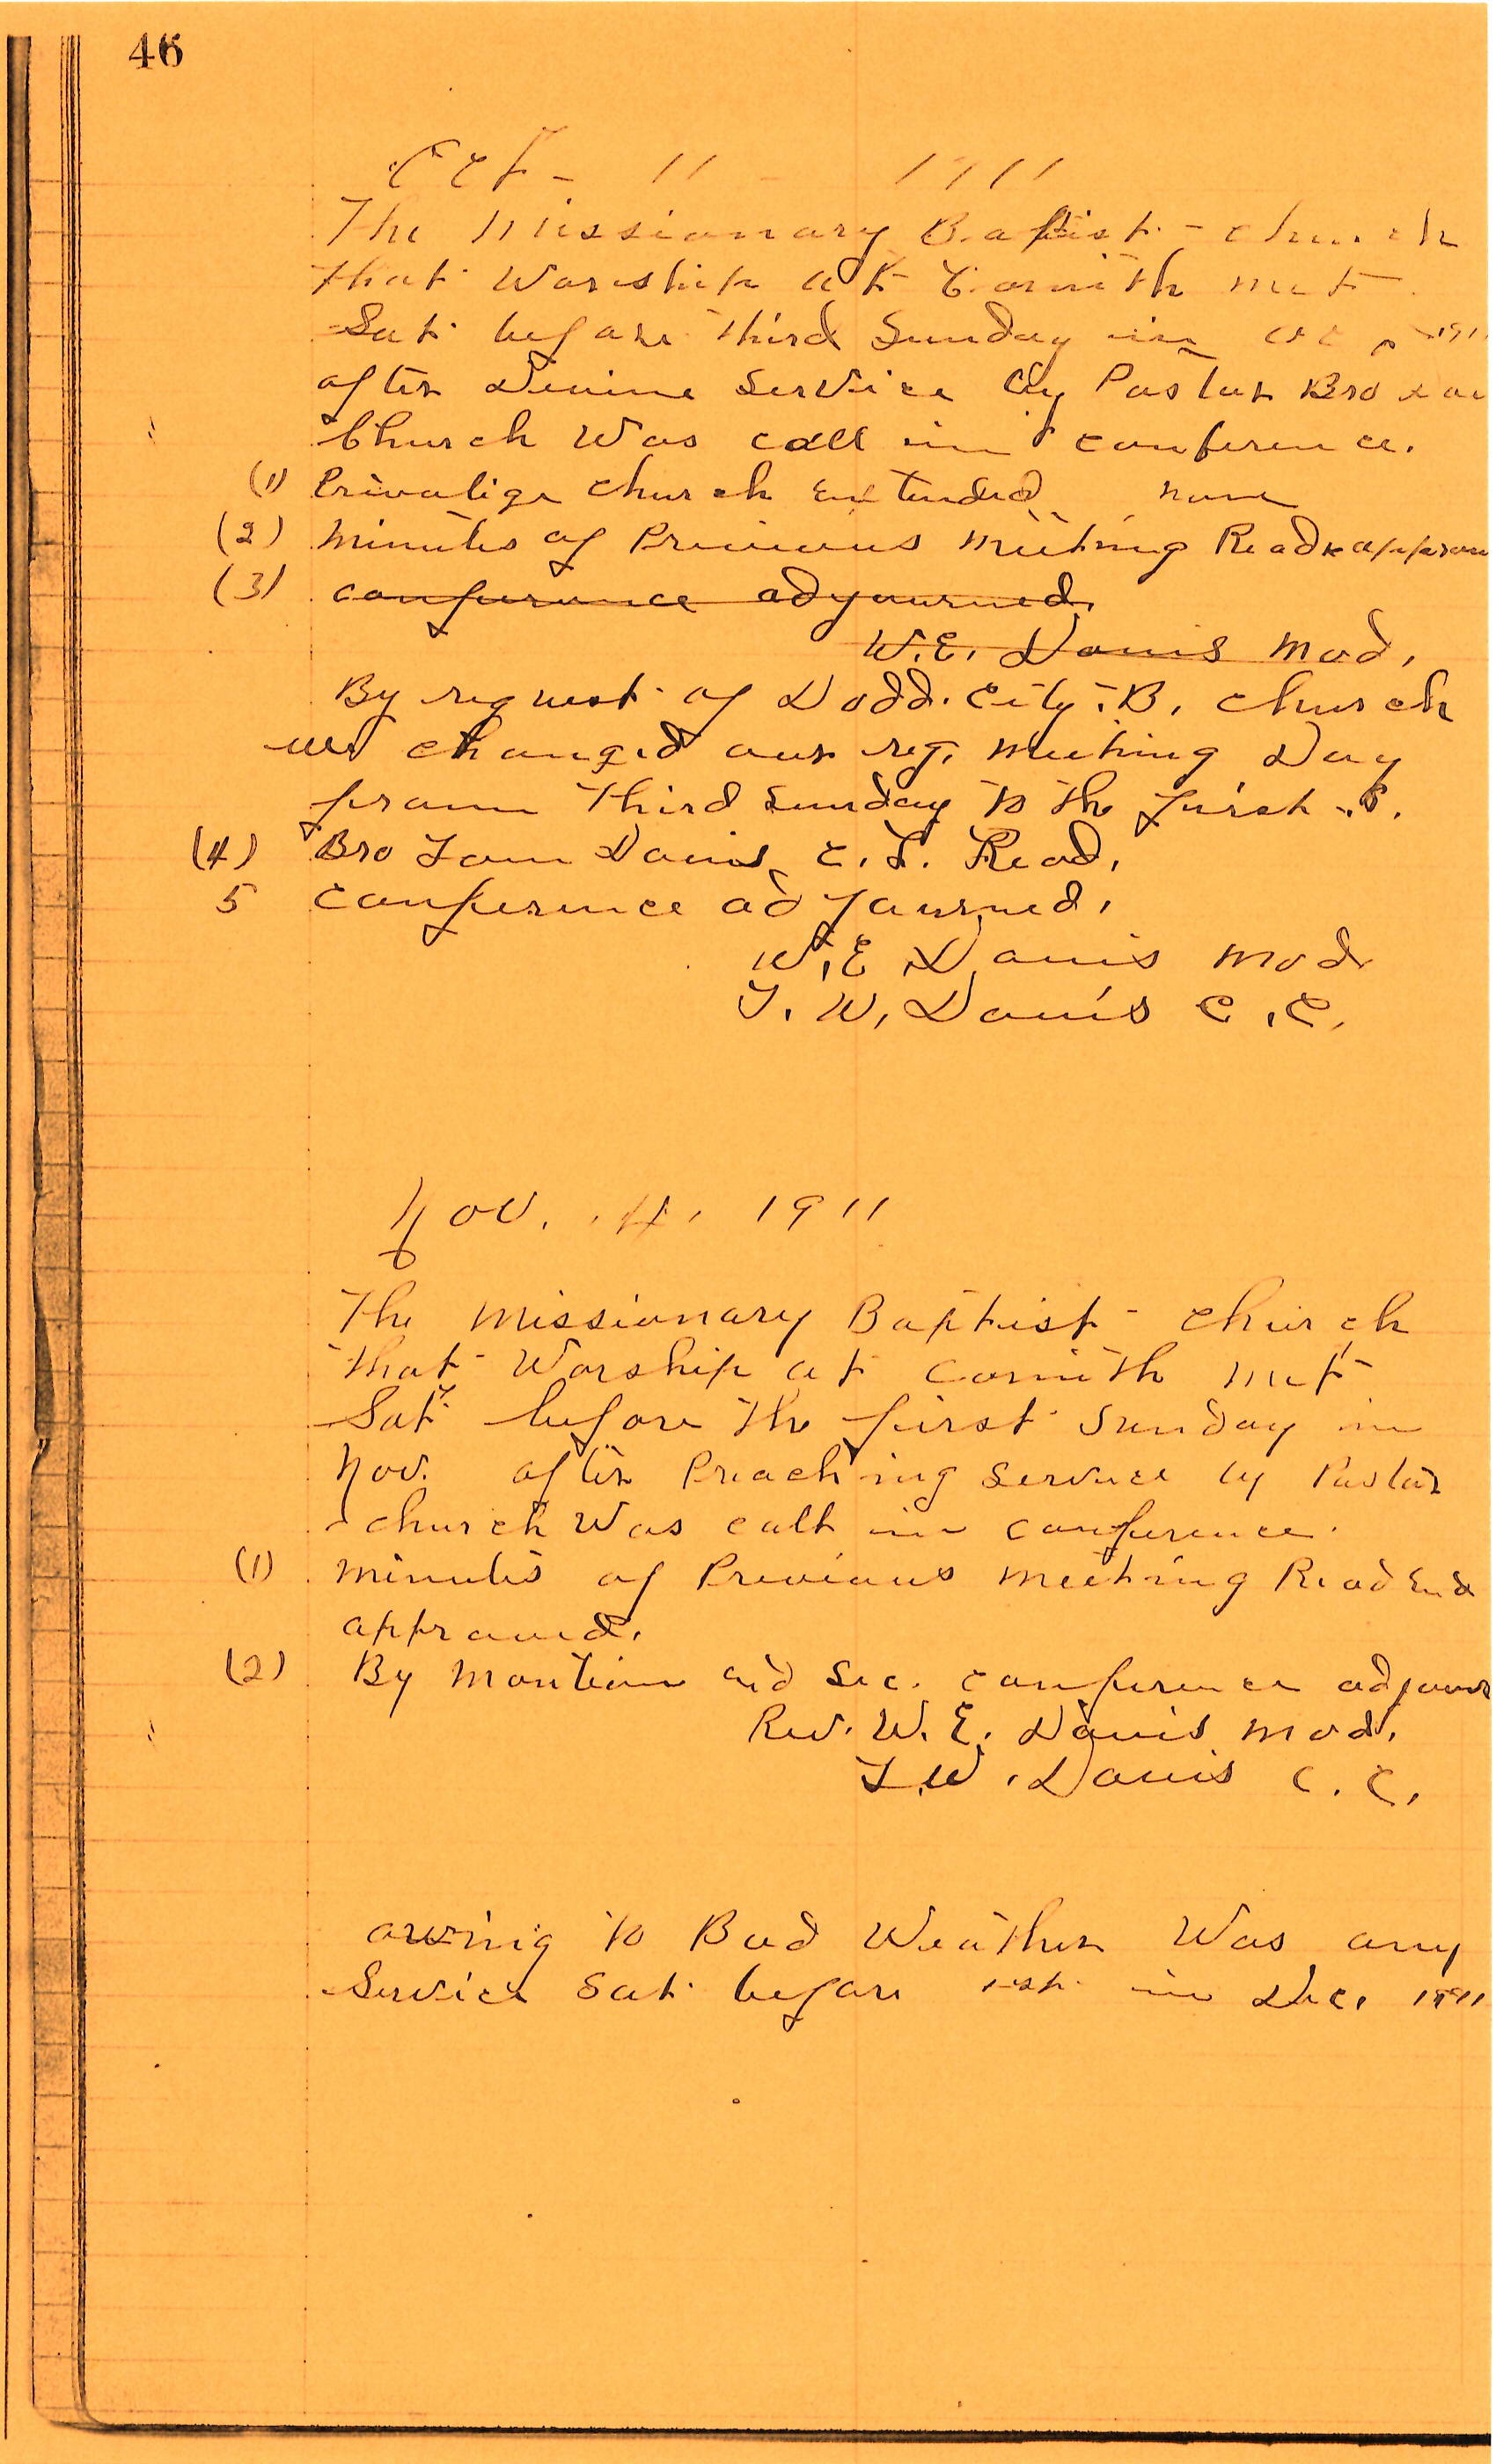 46
Oct - 11 - 1911
The Missionary Baptist - church
that Worship at Corinth met
Sat. before third Sunday in Oct 1911
after Devine Service by Pastor Bro
Church Was call in conference.
(1) Privalige church extended none
(2) minutes of Previous meeting Read & approv
(3) conference adyourned.
W.E. Davis Mod.
By request of Dodd. City. B. church
we changed our reg. meeting Day
from Third Sunday to the first .S.
(4) Bro Tom Davis, C. L. Read.
5 conference adyourned.
W.E Davis Mod
T. W. Davis C.C.
Nov. 4. 1911
The Missionary Baptist - church
that Worship at Corinth met
Sat. before the first Sunday in
Nov. after Preaching Service by Pastor
church Was call in conference.
(1) minutes of Previous meeting Read End
approved.
(2) By Montion and Sec. conference adjour
Rev. W. E. Davis Mod.
T.W. Davis C. C.
owing to Bad Weather Was any
Service Sat. before 1st. in Dec. 1911